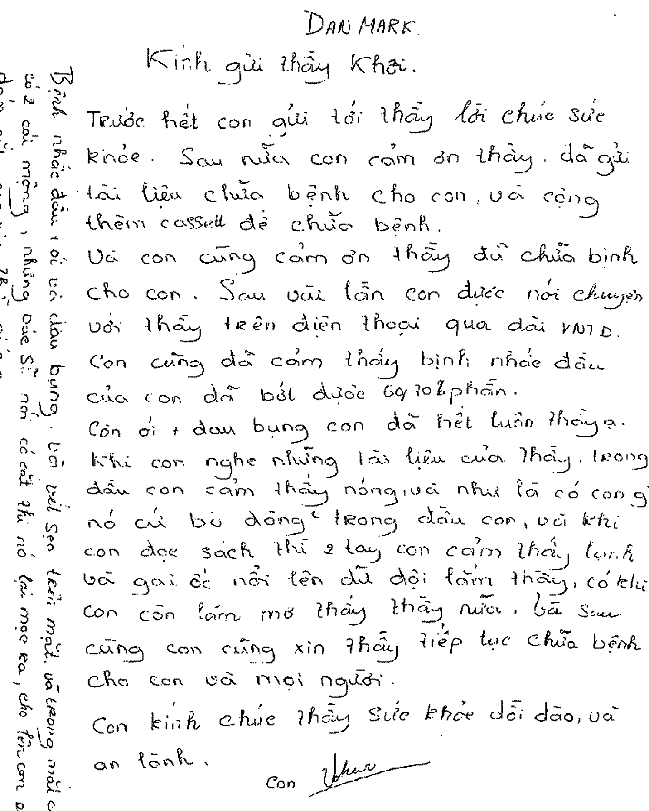 DANMARK.
Kính gửi thầy Khôi.
Trước hết con gửi tới thầy lời chúc sức
khỏe. Sau nữa con cảm ơn thầy. đã gửi
tài liệu chữa bệnh cho con, và cộng
thêm cassett để chữa bệnh.
Và con cũng cảm ơn thầy đã chữa bịnh
cho con. Sau vài lần con được nói chuyện
với thầy trên điện thoại qua đài VNTD.
Con cũng đã cảm thấy bịnh nhức đầu
của con đã bớt được 60, 70% phần.
Còn ói + đau bụng con đã hết luôn thầy ạ.
Khi con nghe những tài liệu của thầy. trong
đầu con cảm thấy nóng, và như là có con gì
nó cứ bò động trong đầu con, và khi
con đọc sách thì 2 tay con cảm thấy lạnh
và gai ốc nổi lên dữ dội lắm thầy, có khi
con còn nằm mơ thấy thầy nữa. Và sau
cùng con cũng xin thầy tiếp tục chữa bệnh
cho con và mọi người.
Con kính chúc thầy sức khỏe dồi dào, và
an lành.
Con
Bệnh nhức đầu + ói và đau bụng. với vết sẹo trên mặt. và trong mắt
có 2 cái mộng, nhưng Bác Sĩ nói có cắt thì nó lại mọc ra, cho lên con